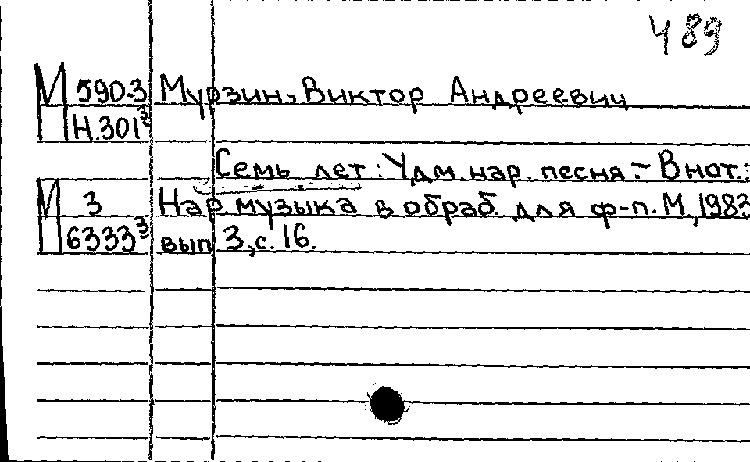 Ч 89
М 590-3 Мурзин, Виктор Андреевич
Н.301³
Семь лет: Удм. нар. песня. - В нот.:
М 3 Нар. музыка в обраб. для ф-п. М., 1983
6333³ вып. 3, с. 16.